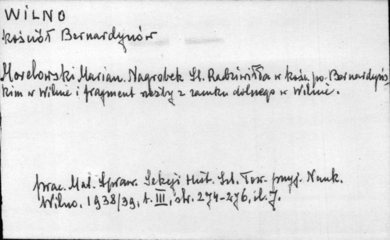 WILNO
kościół Bernardynów
Morelowski Marian. Nagrobek St. Radziwiłła w kośc. po Bernardyńs-
kim w Wilnie i fragment rzeźby z zamku dolnego w Wilnie.
prac. Mat. Spraw. Sekcji Hist. Szt. Tow. przyj. Nauk.
Wilno, 1938/39, t. III, str. 274-276, il. 7.